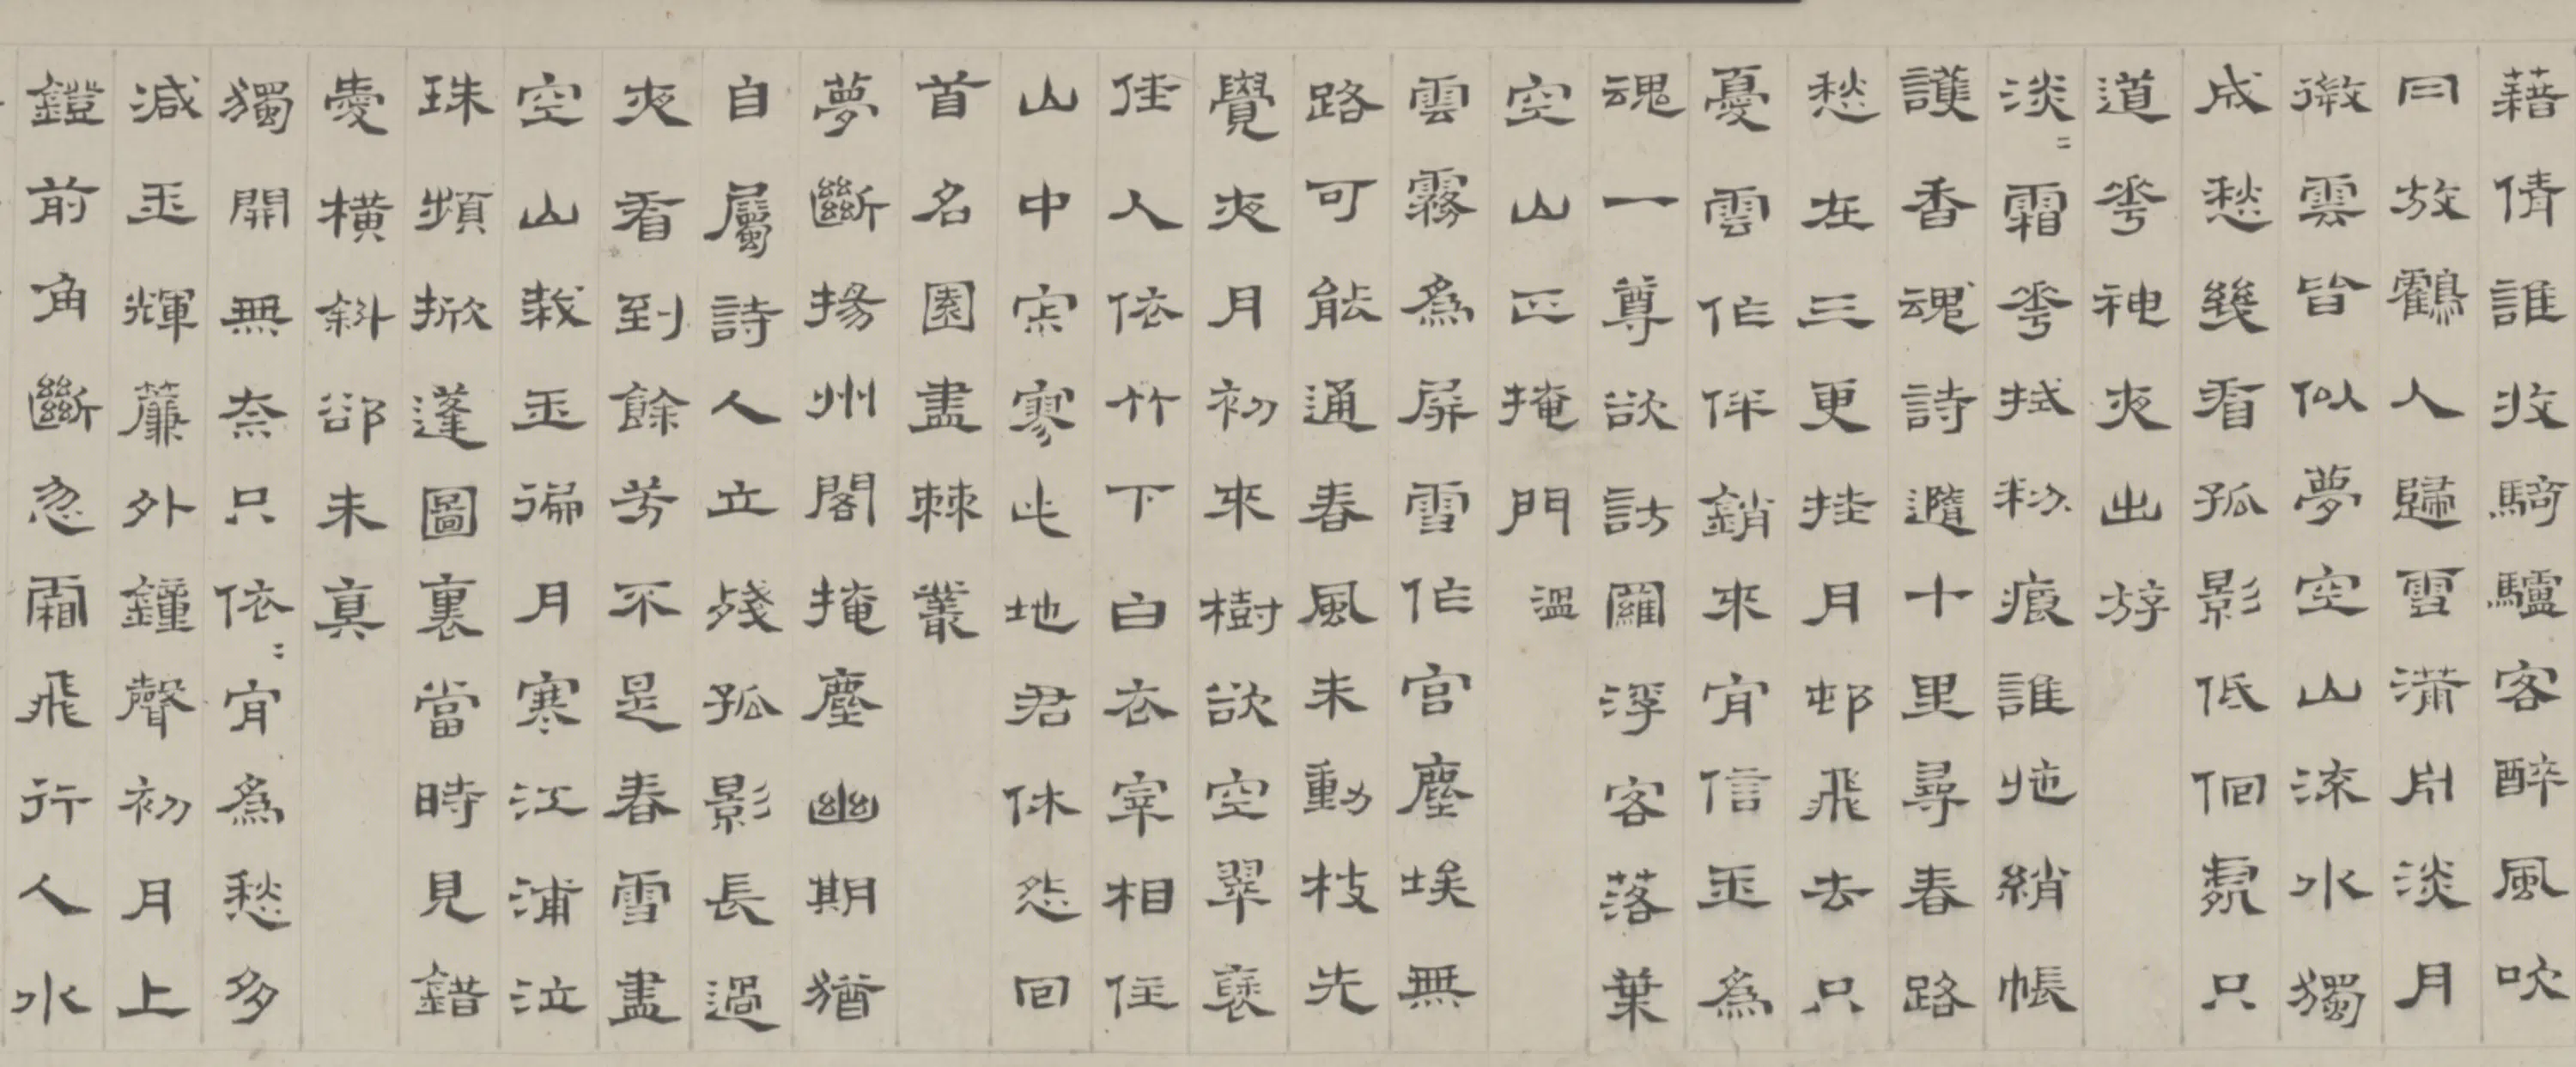 藉倩誰收騎驢客醉風吹
曰放鶴人歸雪滿片淡月
微雲皆似夢空山流水獨
成愁幾看孤影低佪處只
道花神夜出游
淡〻霜花拭粉痕誰施綃帳
護香魂詩隨十里尋春路
愁在三更挂月邨飛去只
憂雲作伴銷來肎信玉為
魂一尊欲訪羅浮客落葉
空山正掩門 溫
雲霧為屏雪作宮塵埃無
路可能通春風未動枝先
覺夜月初來樹欲空翠褏
佳人依竹下白衣宰相住
山中寂寥此地君休怨回
首名園盡棘叢
夢斷揚州閣掩塵幽期猶
自屬詩人立殘孤影長過
夜看到餘芳不是春雪盡
空山栽玉徧月寒江浦泣
珠頻掀蓬圖裏當時見錯
愛橫斜卻未真
獨開無奈只依〻肎為愁多
減玉輝簾外鐘聲初月上
鐙前角斷忽霜飛行人水